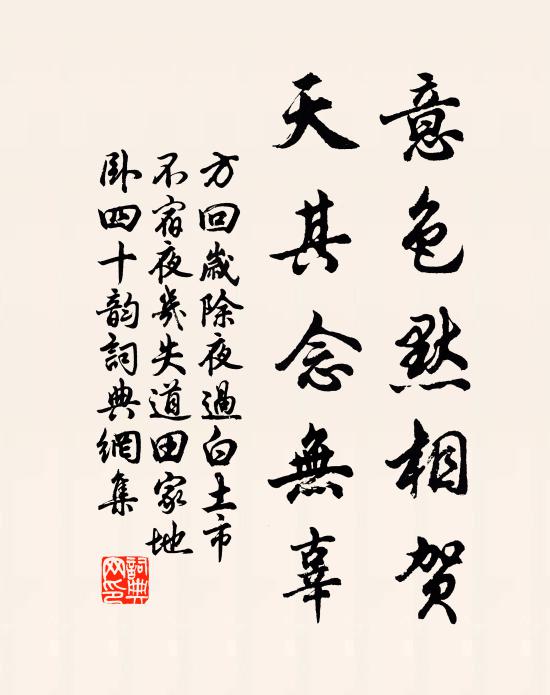 意色默相賀
天其念無辜
方回歲除夜過白土市
不宿夜幾失道田家地
卧四十韵詞典網集
詞典
网印